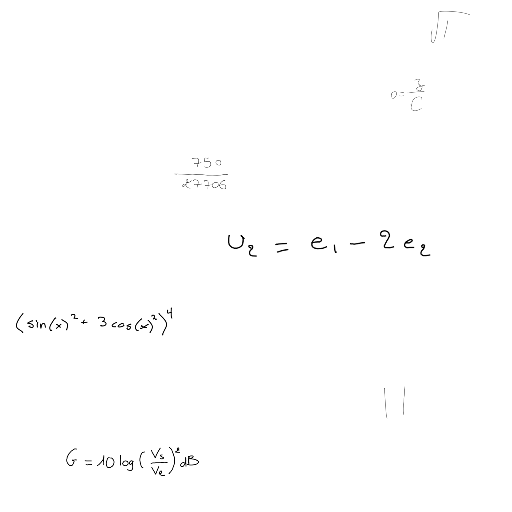 √1
0 = 3/C
750/27706
U₂ = e₁ − 2e₂
(sin(x)² + 3 cos(x)²)⁴
||
G = 10 log(Vs/Ve)² dB